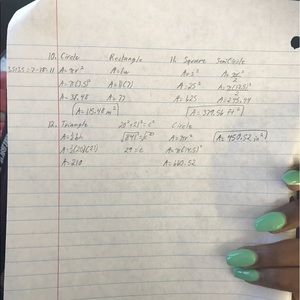 10. Circle Rectangle 11. Square Semicircle
A=πr² A=lw A=s² A=πr²/2
A=π(3.5)² A=11(7) A=25² A=π(12.5)²/2
A=38.48 A=77 A=625 A=245.44
A=115.48 m² A=379.56 ft²
12. Triangle 20²+21²=c² Circle
A=½bh √841=√c² A=πr² A=450.52 in²
A=½(20)(21) 29=c A=π(14.5)²
A=210 A=660.52